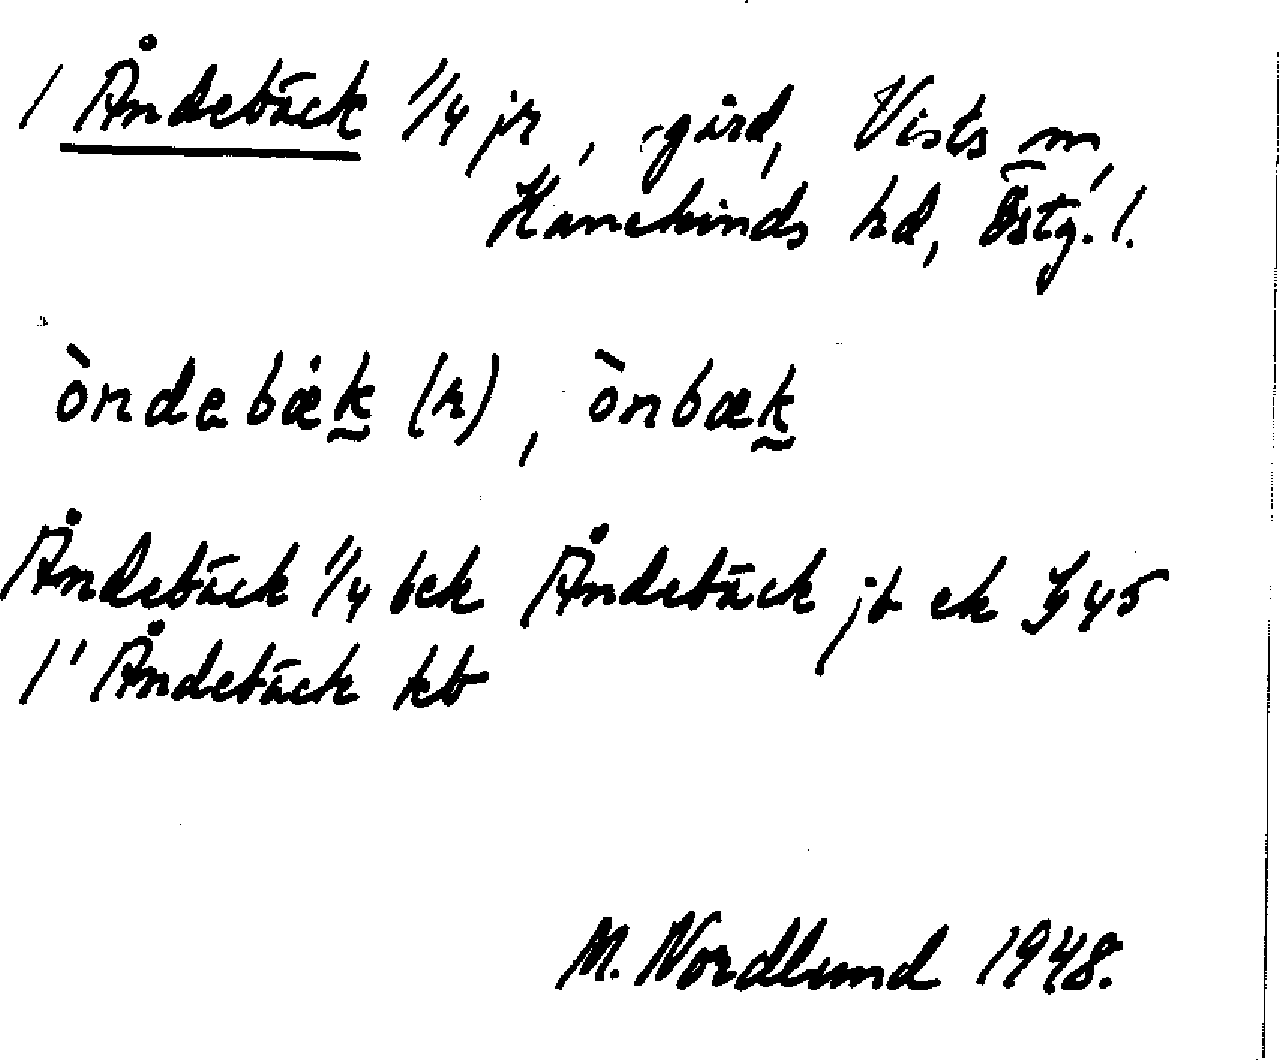 1 Åndebäck 1/4 jr, gård, Vists sn,
Hanekinds hd, Östg. l.
òndebæk (r), ònbæk
Åndebäck 1/4 bek Åndebäck jb ek J 45
1' Åndebäck kb
M. Nordlund 1948.